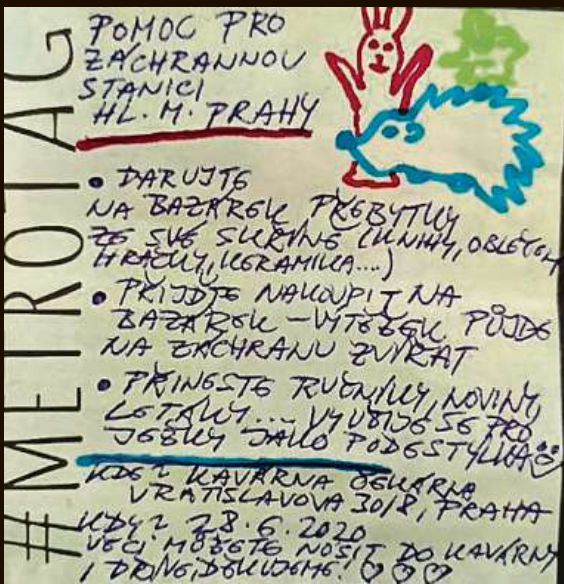 #METROTAG
POMOC PRO
ZÁCHRANNOU
STANICI
HL. M. PRAHY
• DARUJTE
NA BAZÁREK PŘEBYTKY
ZE SVÉ SKŘÍNĚ (KNIHY, OBLEČENÍ
HRAČKY, KERAMIKA....)
• PŘIJĎTE NAKOUPIT NA
BAZÁREK – VÝTĚŽEK PŮJDE
NA ZÁCHRANU ZVÍŘAT
• PŘINESTE RUČNÍKY, NOVINY,
LETÁKY... VYUŽIJE SE PRO
JEŽKY JAKO PODESTÝLKA
KDE? KAVÁRNA
VRATISLAVOVA 30/8, PRAHA
KDY? 28.6.2020
VĚCI MŮŽETE NOSIT DO KAVÁRNY
I DŘÍVE, DĚKUJEME!